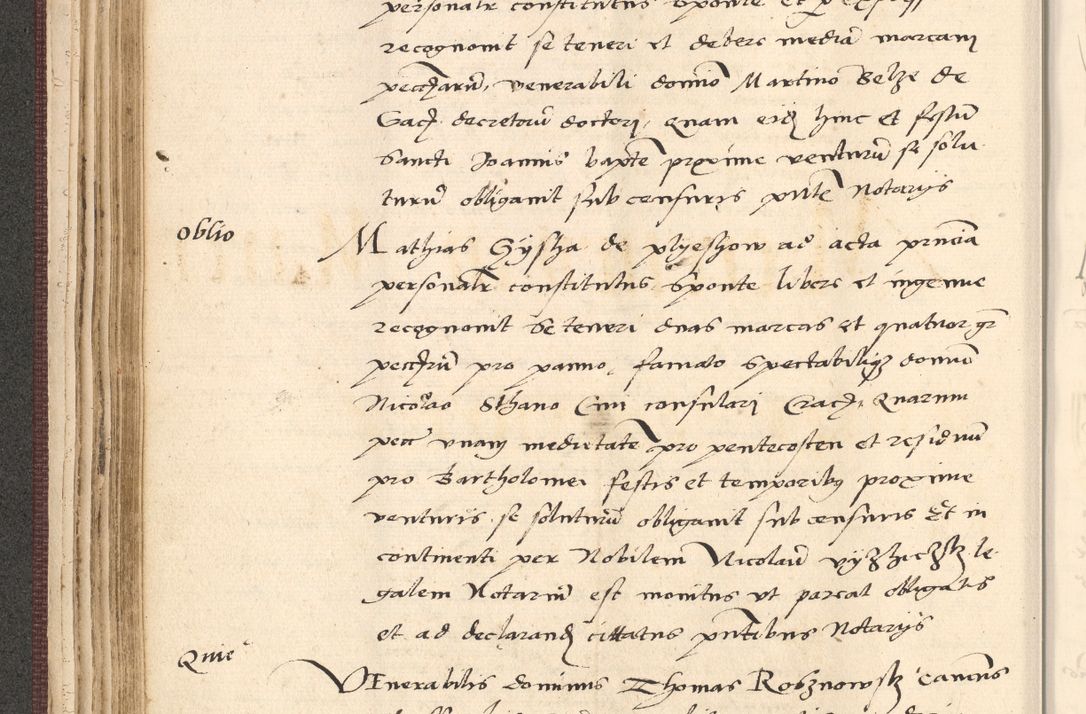 personalr constitutus sponte et p exp
recognovit se teneri et debere mediā marcam
pecc̄iarū, venerabili domīo Martino Belze de
Gacz decretorū doctori, Quam eidē hinc et festū
Sancti Joannis bapte proxime venturū se solu-
turū obligavit sub censuris pn̄te Notariis
Oblio
Mathias Gÿsha de plyeshow ad acta pn̄cia
personalr constitutus, Sponte libere et ingenue
recognovit se teneri duas marcas et quatuor gr
pecc̄iarū pro panno, famato spectabiliqz domīo
Nicolao Sthano Civi consulari Crac, Quarum
pecc̄ unam medietatē pro pentecosten et residuū
pro Bartholomei festis et temporibus proxime
venturis, se soluturū obligavit sub censuris Et in
continenti per Nobilem Nicolaū le-
galem Notariū est monitus ut pareat obligatis
et ad declarandū cittatus pn̄tibus Notariis
Quie
VEnerabilis dominus Thomas Robznowsky Canonus